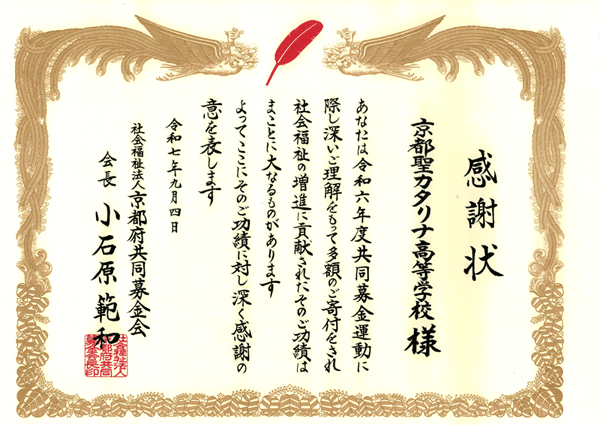 感謝状
京都聖カタリナ高等学校 様
あなたは令和六年度共同募金運動に
際し深いご理解をもって多額のご寄付をされ
社会福祉の増進に貢献されたそのご功績は
まことに大なるものがあります
よってここにそのご功績に対し深く感謝の
意を表します
令和七年九月四日
社会福祉法人京都府共同募金会
会長 小石原範和